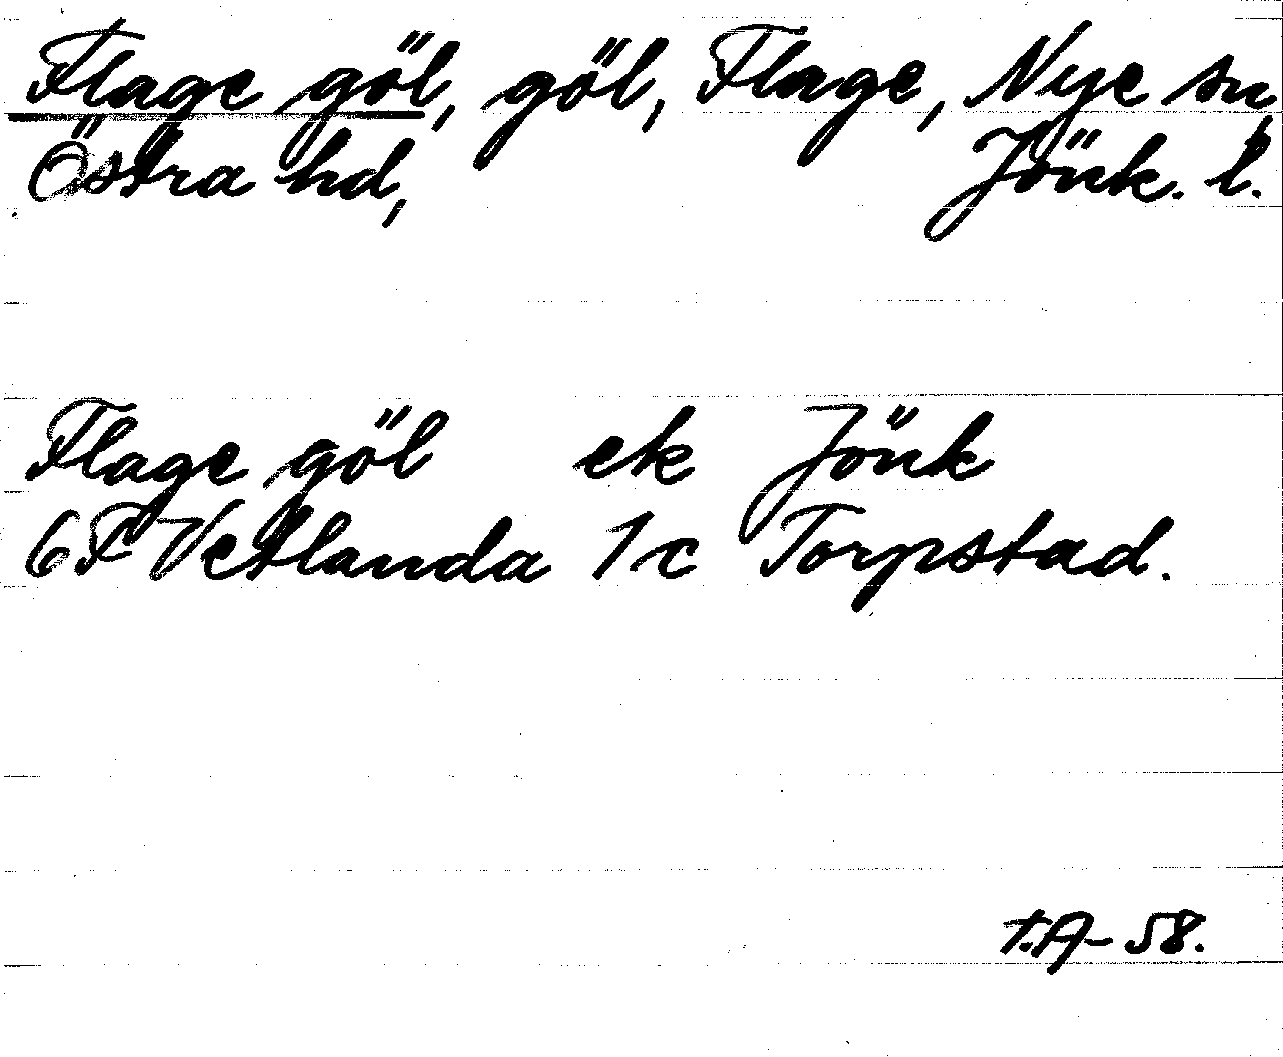 Flage göl, göl, Flage, Nye sn,
Östra hd, Jönk. l.
Flage göl ek Jönk
6F Vetlanda 1c Torpstad.
T.A-58.